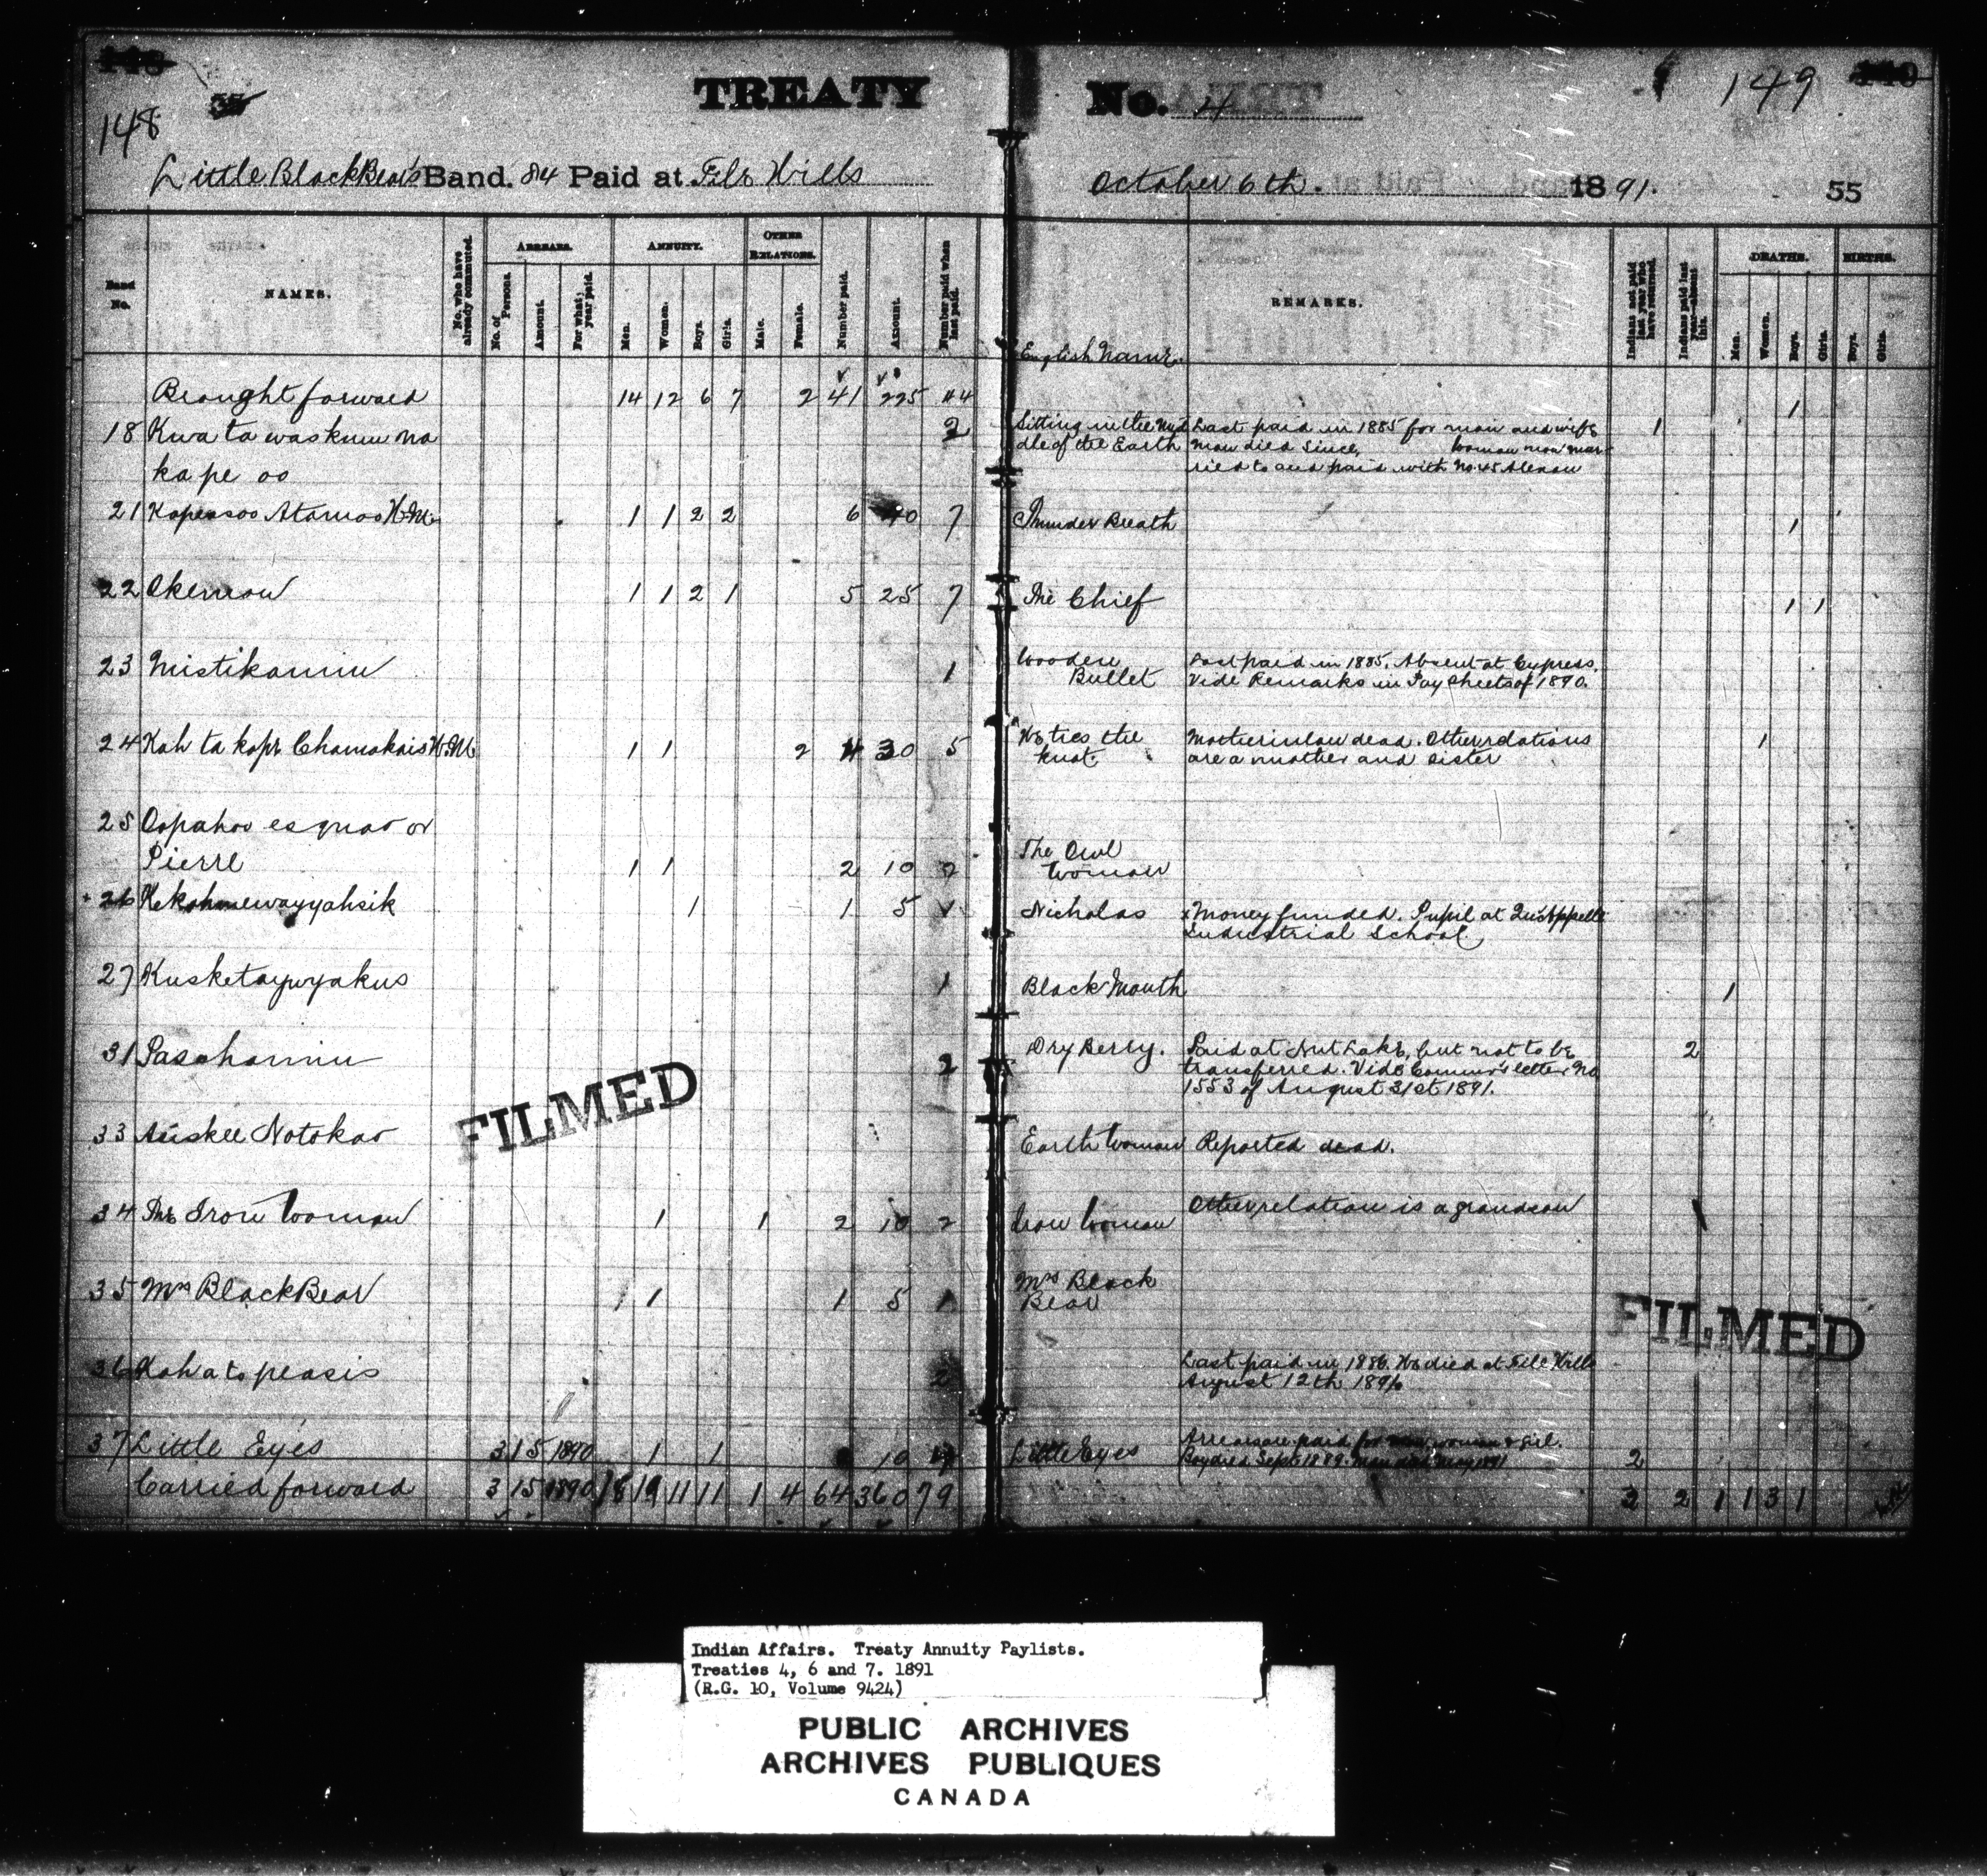 148
TREATY
No. 4
149
Little BlackBear's Band. 84 Paid at File Hills
October 6th. 1891.
55
Band No.
NAMES.
No. who have already commuted.
ARREARS.
No. of Persons.
Amount.
For what year paid.
ANNUITY.
Men.
Women.
Boys.
Girls.
OTHER RELATIONS.
Male.
Female.
Number paid.
Amount.
Number paid when last paid.
English Name.
REMARKS.
Indians not paid last year who have returned.
Indians paid last year—absent this.
DEATHS.
Men.
Women.
Boys.
Girls.
BIRTHS.
Boys.
Girls.
Brought forward 14 12 6 7 2 41 225 44 1
18 Kwa ta waskum na 2 Sitting in the Mid Last paid in 1885 for man and wife 1
dle of the Earth man died since, Woman now mar
ka pe oo ried to and paid with No. 45 Alexan
21 Kapeasoo Atamoo H.M. 1 1 2 2 6 40 7 Thunder Breath 1
22 Okemow 1 1 2 1 5 25 7 The Chief 1 1
23 Mistikaminu 1 Wooden Last paid in 1885. Absent at Cypress.
Bullet Vide Remarks in Pay Sheets of 1890.
24 Kah ta kope Chamakais H.M. 1 1 2 4 30 5 He ties the Mother in law dead. Other relations 1
knot. are a mother and sister
25 Oopahoo esquao or
Pierre 1 1 2 10 2 The Owl
Woman
+ 26 Kekahmewayyahsik 1 1 5 Nicholas x Money funded. Pupil at Qu'Appelle
Industrial School.
27 Kusketaywyakus 1 Black Mouth 1
31 Pasahaminu 2 Dry Berry. Paid at Nut Lake, but not to be 2
transferred. Vide Commr's letter No
1553 of August 31st 1891.
33 Auskee Notokao Earth Woman Reported dead.
34 The Iron Woman 1 1 2 10 2 Iron Woman Other relation is a grandson
35 Mrs BlackBear 1 1 5 1 Mrs Black
Bear
36 Kah a to peasis 2 Last paid in 1886. He died at File Hills
August 12th
37 Little Eyes 3 15 1890 1 1 10 Little Eyes Arrears are paid for woman & girl. 2
Boy died Sept 1889. Man died May 1891
Carried forward 3 15 1890 18 19 11 11 1 4 64 360 79 3 2 1 1 3 1
FILMED
FILMED
Indian Affairs. Treaty Annuity Paylists.
Treaties 4, 6 and 7. 1891
(R.G. 10, Volume 9424)
PUBLIC ARCHIVES
ARCHIVES PUBLIQUES
CANADA